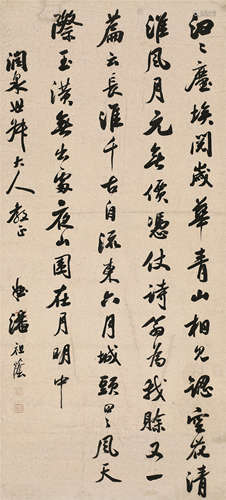 汩〻塵埃閱歲華青山相見認雪花清
淮風月元無價憑仗詩翁為我賒又一
篇云長淮千古自流東六月城頭風天
際玉潢無出處夜山圍在月明中
潤泉世大人教正
潘祖蔭